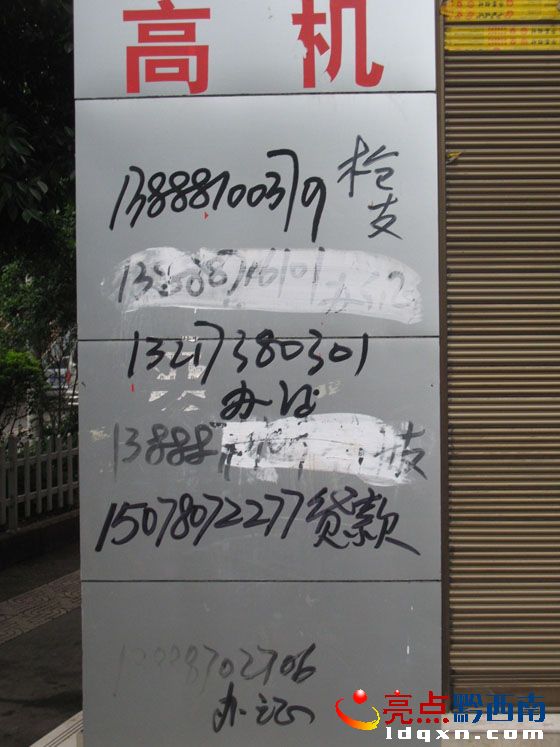 高机
13888700379 枪支
办证
13217380301
办证
13888 支
15078072277 贷款
702706
办证
亮点黔西南
ldqxn.com